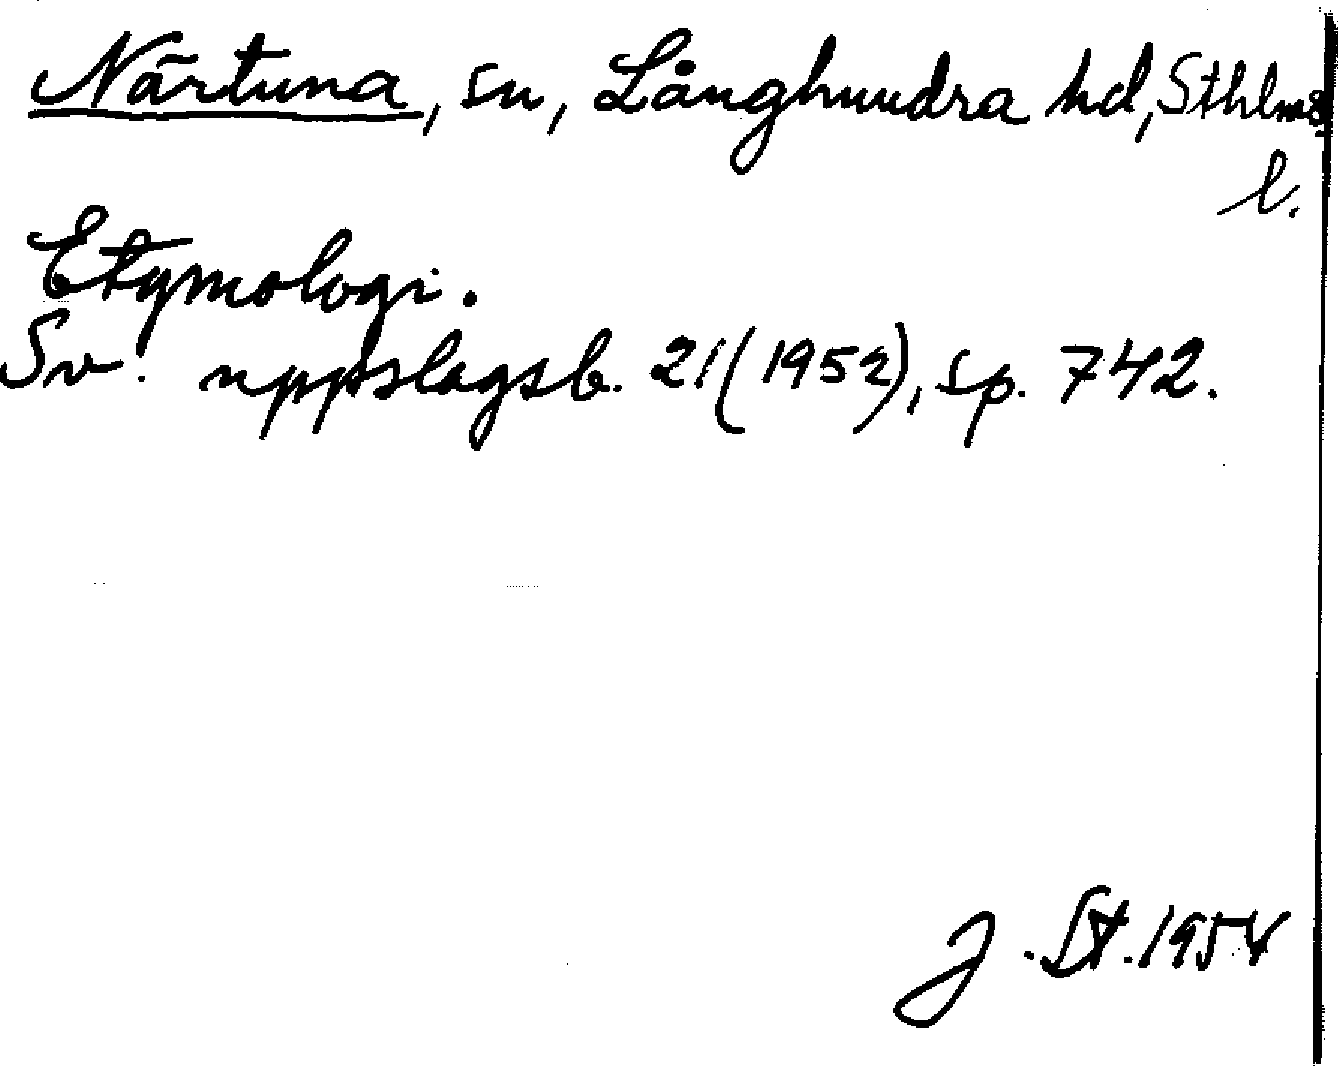 Närtuna, sn, Långhundra hd, Sthlms
l.
Etymologi.
Sv. uppslagsb. 21 (1952), sp. 742.
J. St. 1954